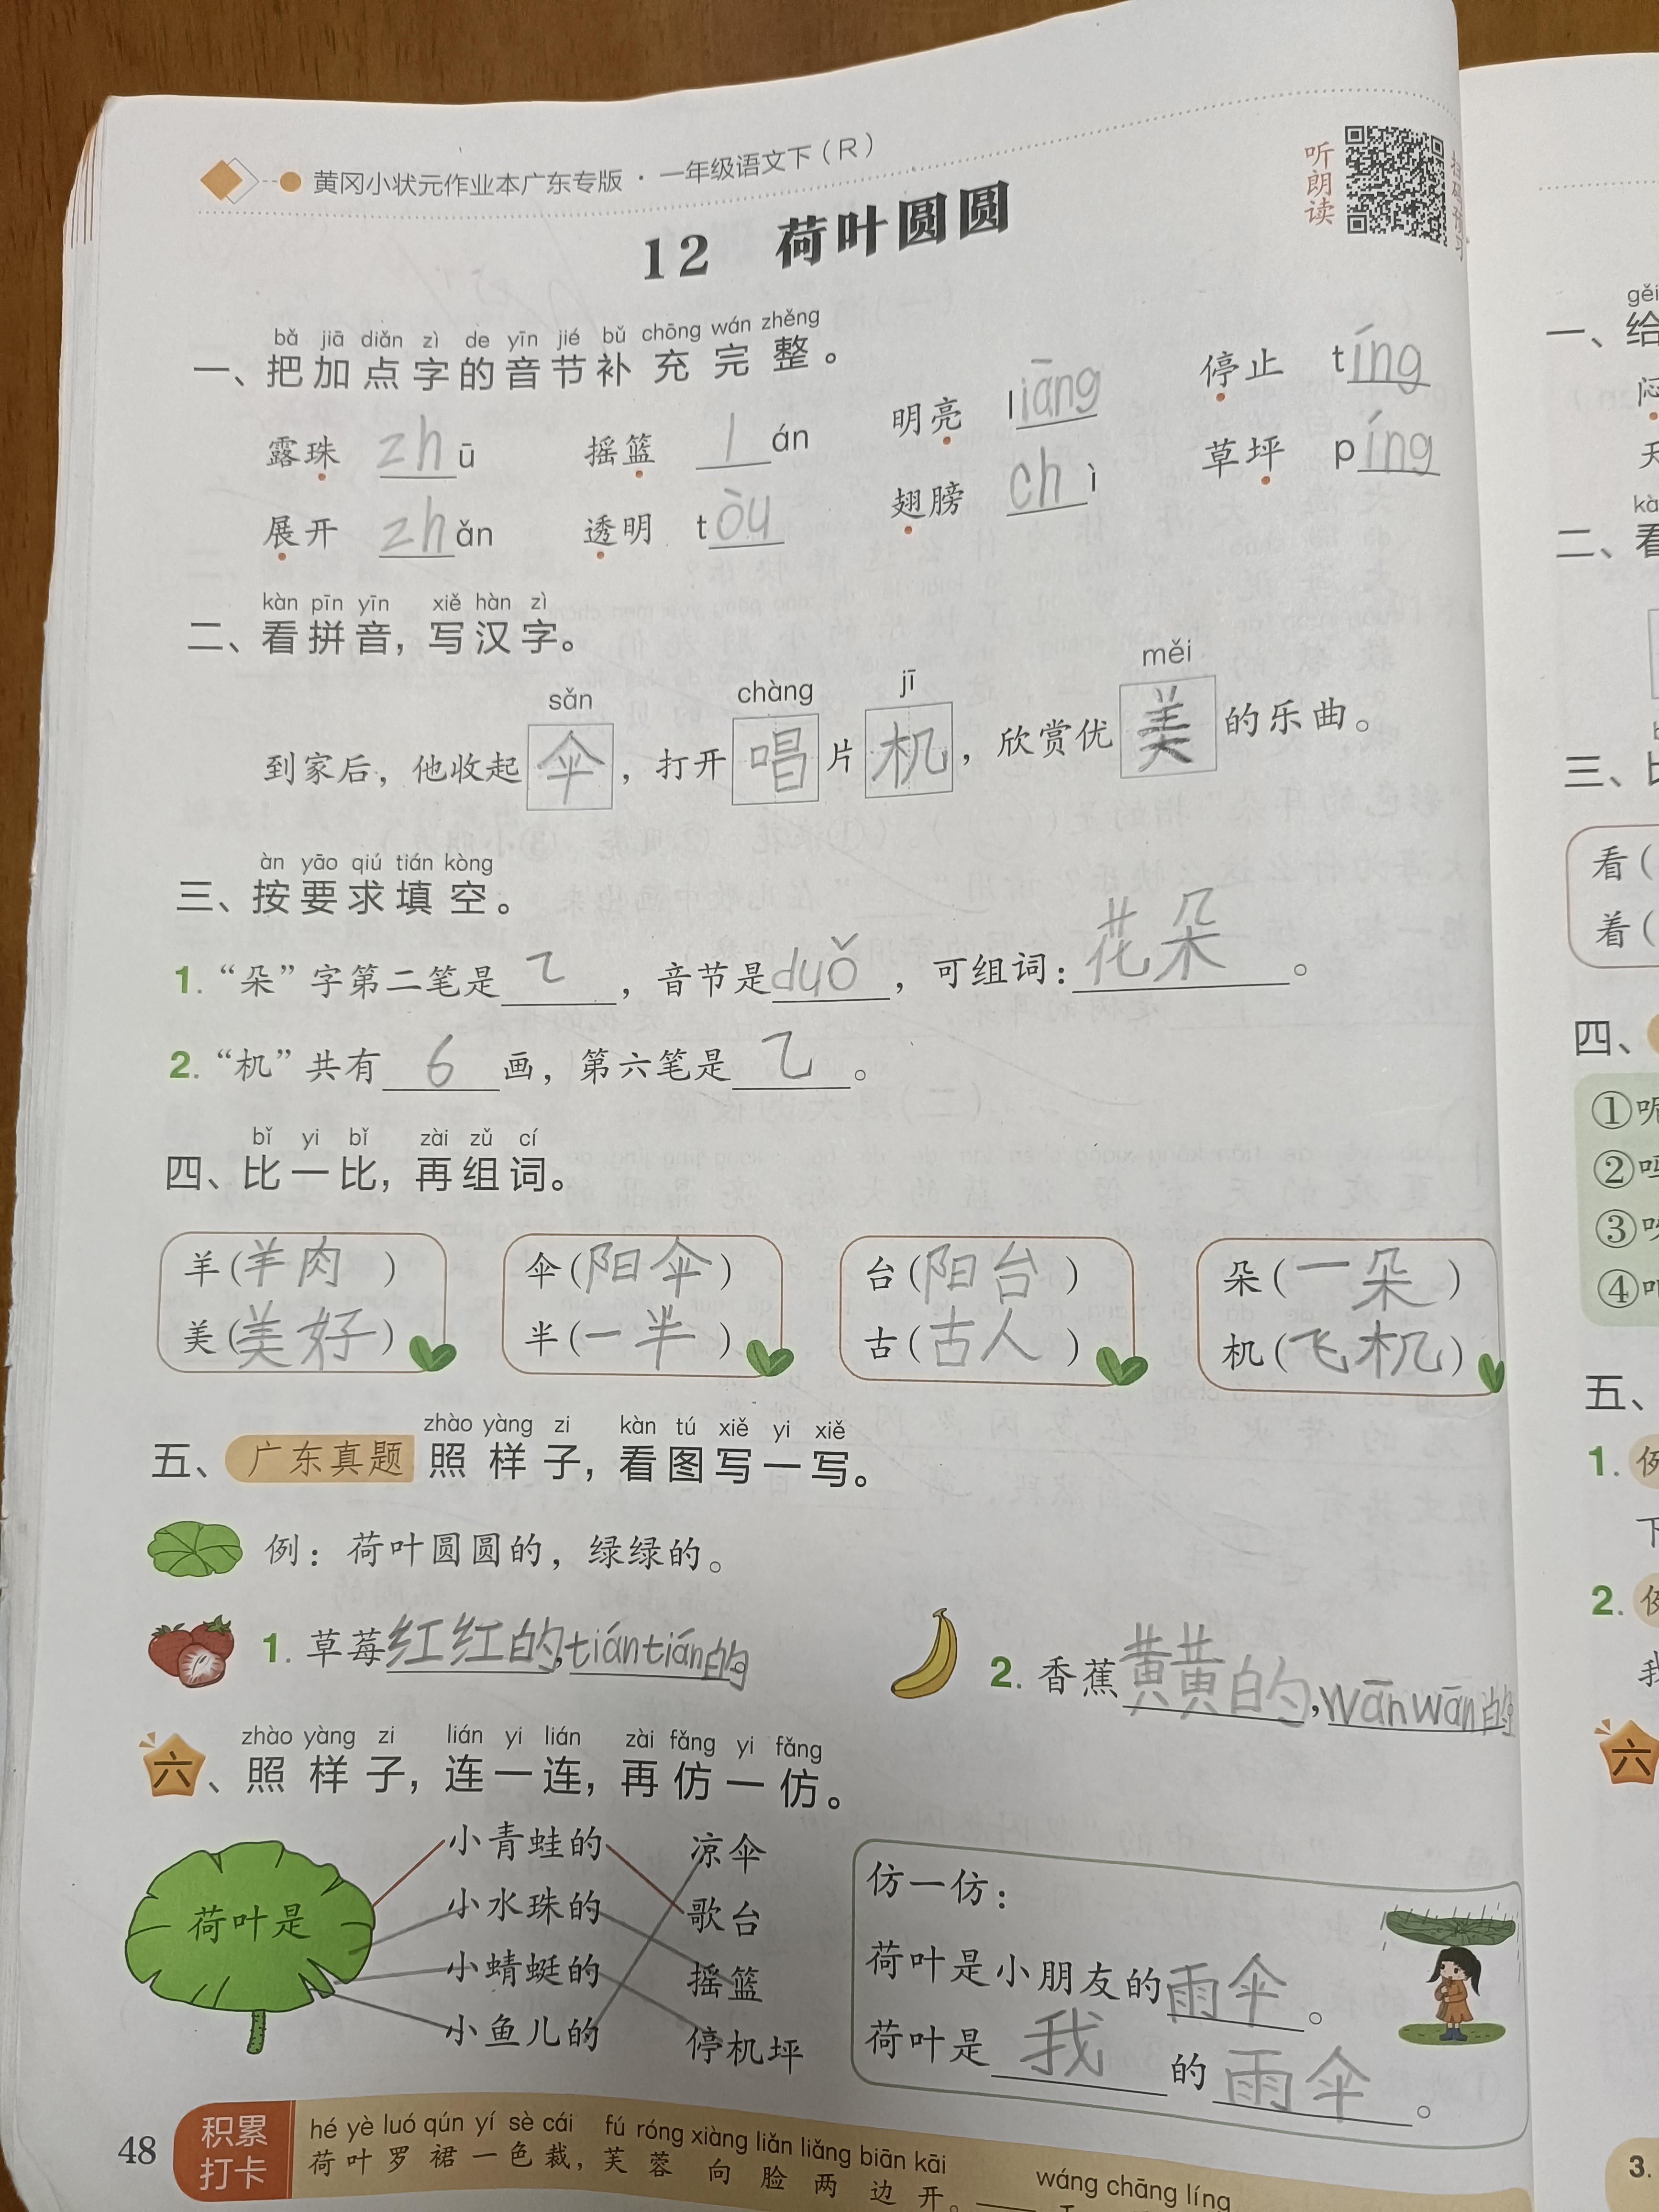 黄冈小状元作业本广东专版·一年级语文下（R）
听朗读
12 荷叶圆圆
bǎ jiā diǎn zì de yīn jié bǔ chōng wán zhěng
一、把加点字的音节补充完整。
露珠 zhū 摇篮 lán 明亮 liāng 停止 tíng
展开 zhǎn 透明 tòu 翅膀 chì 草坪 píng
kàn pīn yīn xiě hàn zì
二、看拼音，写汉字。
sǎn chàng jī měi
到家后，他收起伞，打开唱片机，欣赏优美的乐曲。
àn yāo qiú tián kòng
三、按要求填空。
1. “朵”字第二笔是乁，音节是duǒ，可组词：花朵。
2. “机”共有6画，第六笔是乁。
bǐ yi bǐ zài zǔ cí
四、比一比，再组词。
羊（羊肉） 伞（阳伞） 台（阳台） 朵（一朵）
美（美好） 半（一半） 古（古人） 机（飞机）
zhào yàng zi kàn tú xiě yi xiě
五、广东真题 照样子，看图写一写。
例：荷叶圆圆的，绿绿的。
1. 草莓红红的，tiántián的
2. 香蕉黄黄的，wānwān的
zhào yàng zi lián yi lián zài fǎng yi fǎng
六、照样子，连一连，再仿一仿。
荷叶是
小青蛙的 凉伞
小水珠的 歌台
小蜻蜓的 摇篮
小鱼儿的 停机坪
仿一仿：
荷叶是小朋友的雨伞。
荷叶是我的雨伞。
48
积累打卡
hé yè luó qún yí sè cái fú róng xiàng liǎn liǎng biān kāi
荷叶罗裙一色裁，芙蓉向脸两边开。——
wáng chāng líng
gěi
一、给
闷
天
kà
二、看
三、比
看（
着（
四、
①呢
②吗
③
④吧
五、
1. 例
下
2. 例
我
六
3.